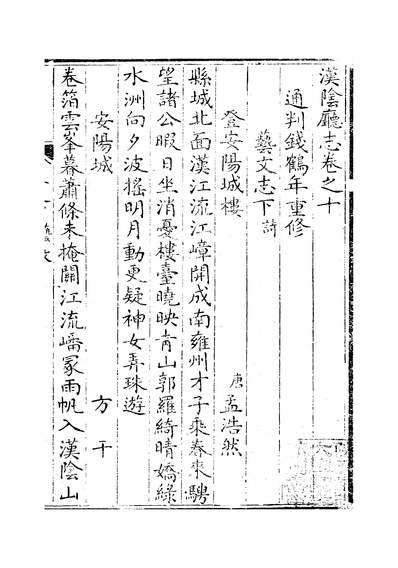 漢陰廳志卷之十
通判錢鶴年重修
藝文志下 詩
登安陽城樓 唐 孟浩然
縣城北面漢江流江嶂開成南雍州才子乘春來騁
望諸公暇日坐消憂樓臺曉映青山郭羅綺晴嬌綠
水洲向夕波搖明月動更疑神女弄珠遊
安陽城 方干
卷箔雲峯暮蕭條未掩關江流嶓冢雨帆入漢陰山